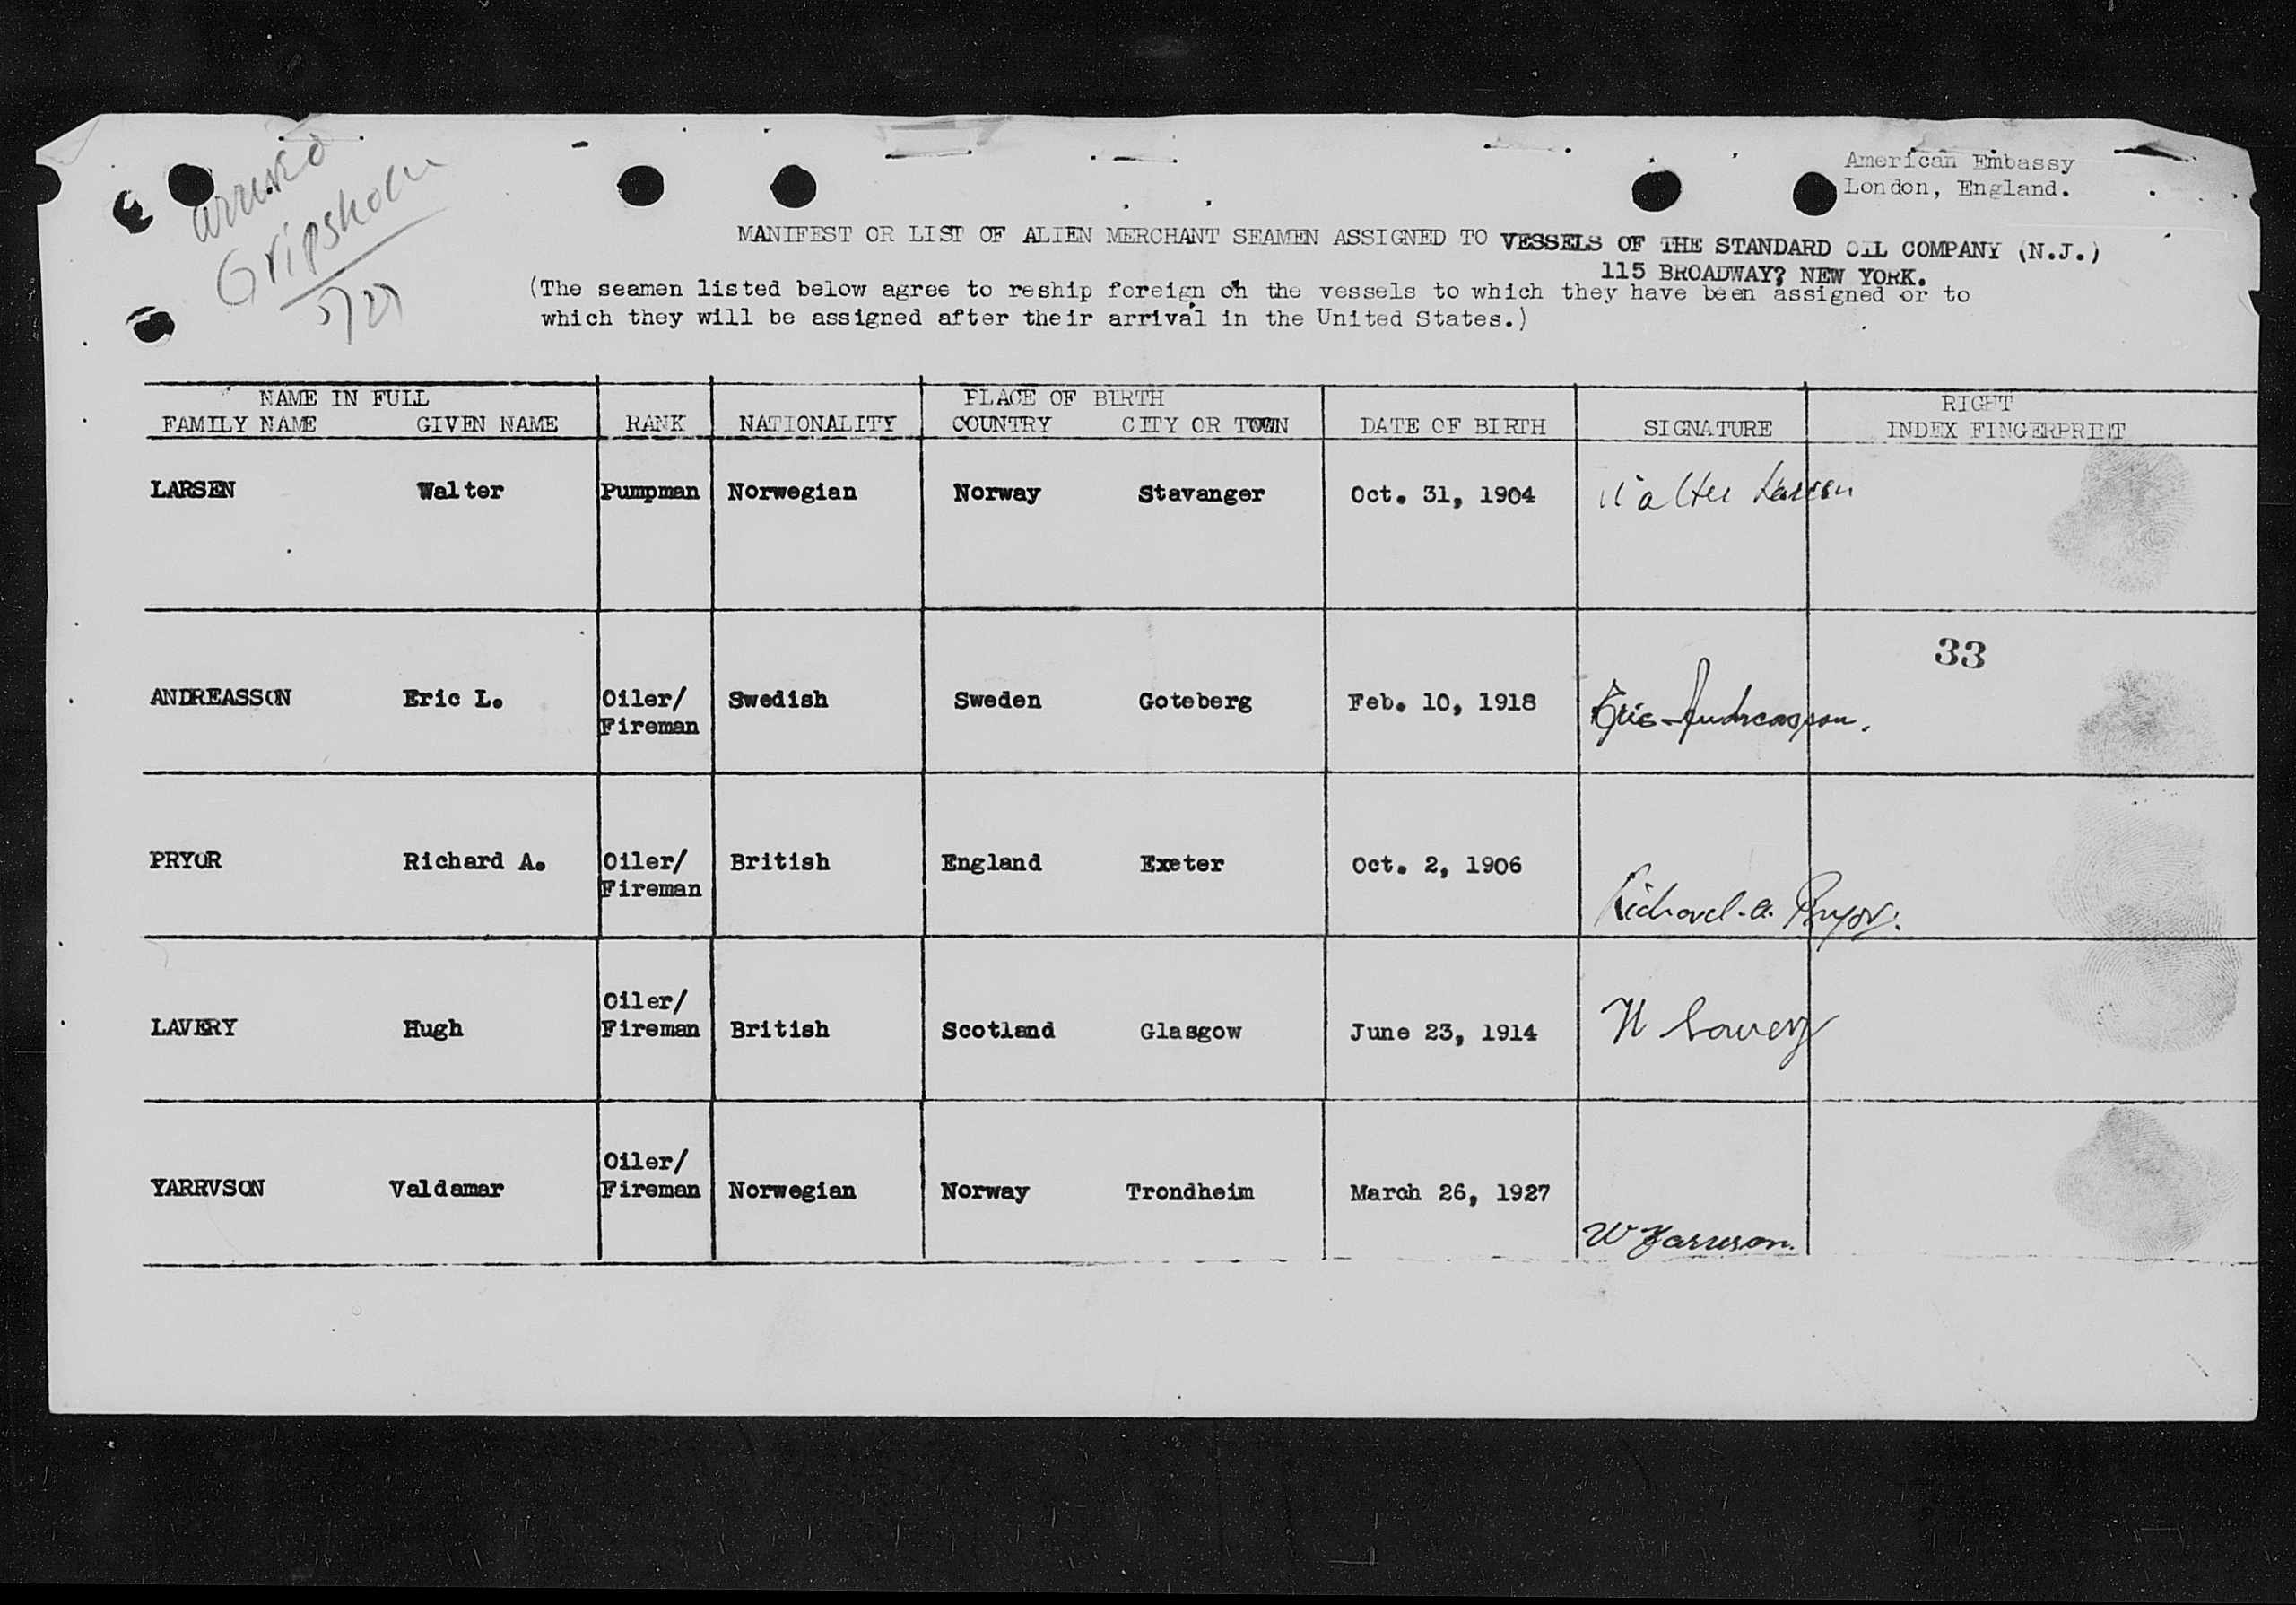 arrived
Gripsholm
5/27
American Embassy
London, England.
MANIFEST OR LIST OF ALIEN MERCHANT SEAMEN ASSIGNED TO VESSELS OF THE STANDARD OIL COMPANY (N.J.)
115 BROADWAY? NEW YORK.
(The seamen listed below agree to reship foreign on the vessels to which they have been assigned or to
which they will be assigned after their arrival in the United States.)
NAME IN FULL PLACE OF BIRTH RIGHT
FAMILY NAME GIVEN NAME RANK NATIONALITY COUNTRY CITY OR TOWN DATE OF BIRTH SIGNATURE INDEX FINGERPRINT
LARSEN Walter Pumpman Norwegian Norway Stavanger Oct. 31, 1904 Walter Larsen
33
ANDREASSON Eric L. Oiler/ Swedish Sweden Goteberg Feb. 10, 1918 Eric Andreasson.
Fireman
PRYOR Richard A. Oiler/ British England Exeter Oct. 2, 1906
Fireman Richard. A. Pryor.
Oiler/
LAVERY Hugh Fireman British Scotland Glasgow June 23, 1914 H Lavery
Oiler/
YARRVSON Valdamar Fireman Norwegian Norway Trondheim March 26, 1927
W Yarruson.